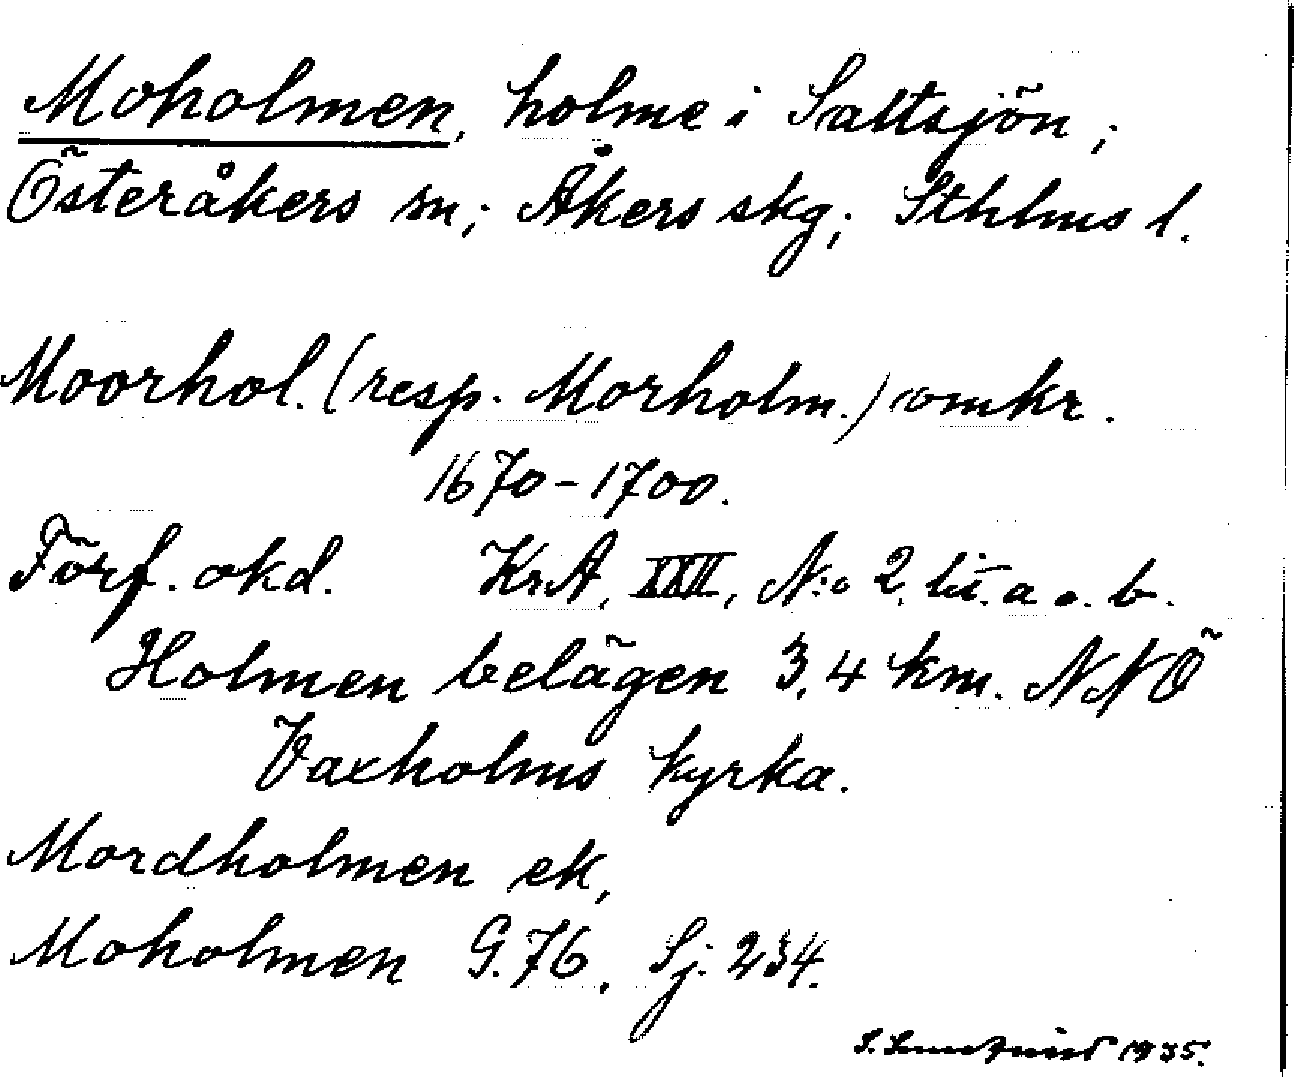 Moholmen, holme i Saltsjön;
Österåkers sn; Åkers skg; Sthlms l.
Moorhol. (resp. Morholm.) omkr.
1670-1700.
Förf. okd. KrA, XXII, N:o 2, lit. a o. b.
Holmen belägen 3,4 km. NNÖ
Vaxholms kyrka.
Mordholmen ek,
Moholmen G.76, Sj. 234.
S. 1935.